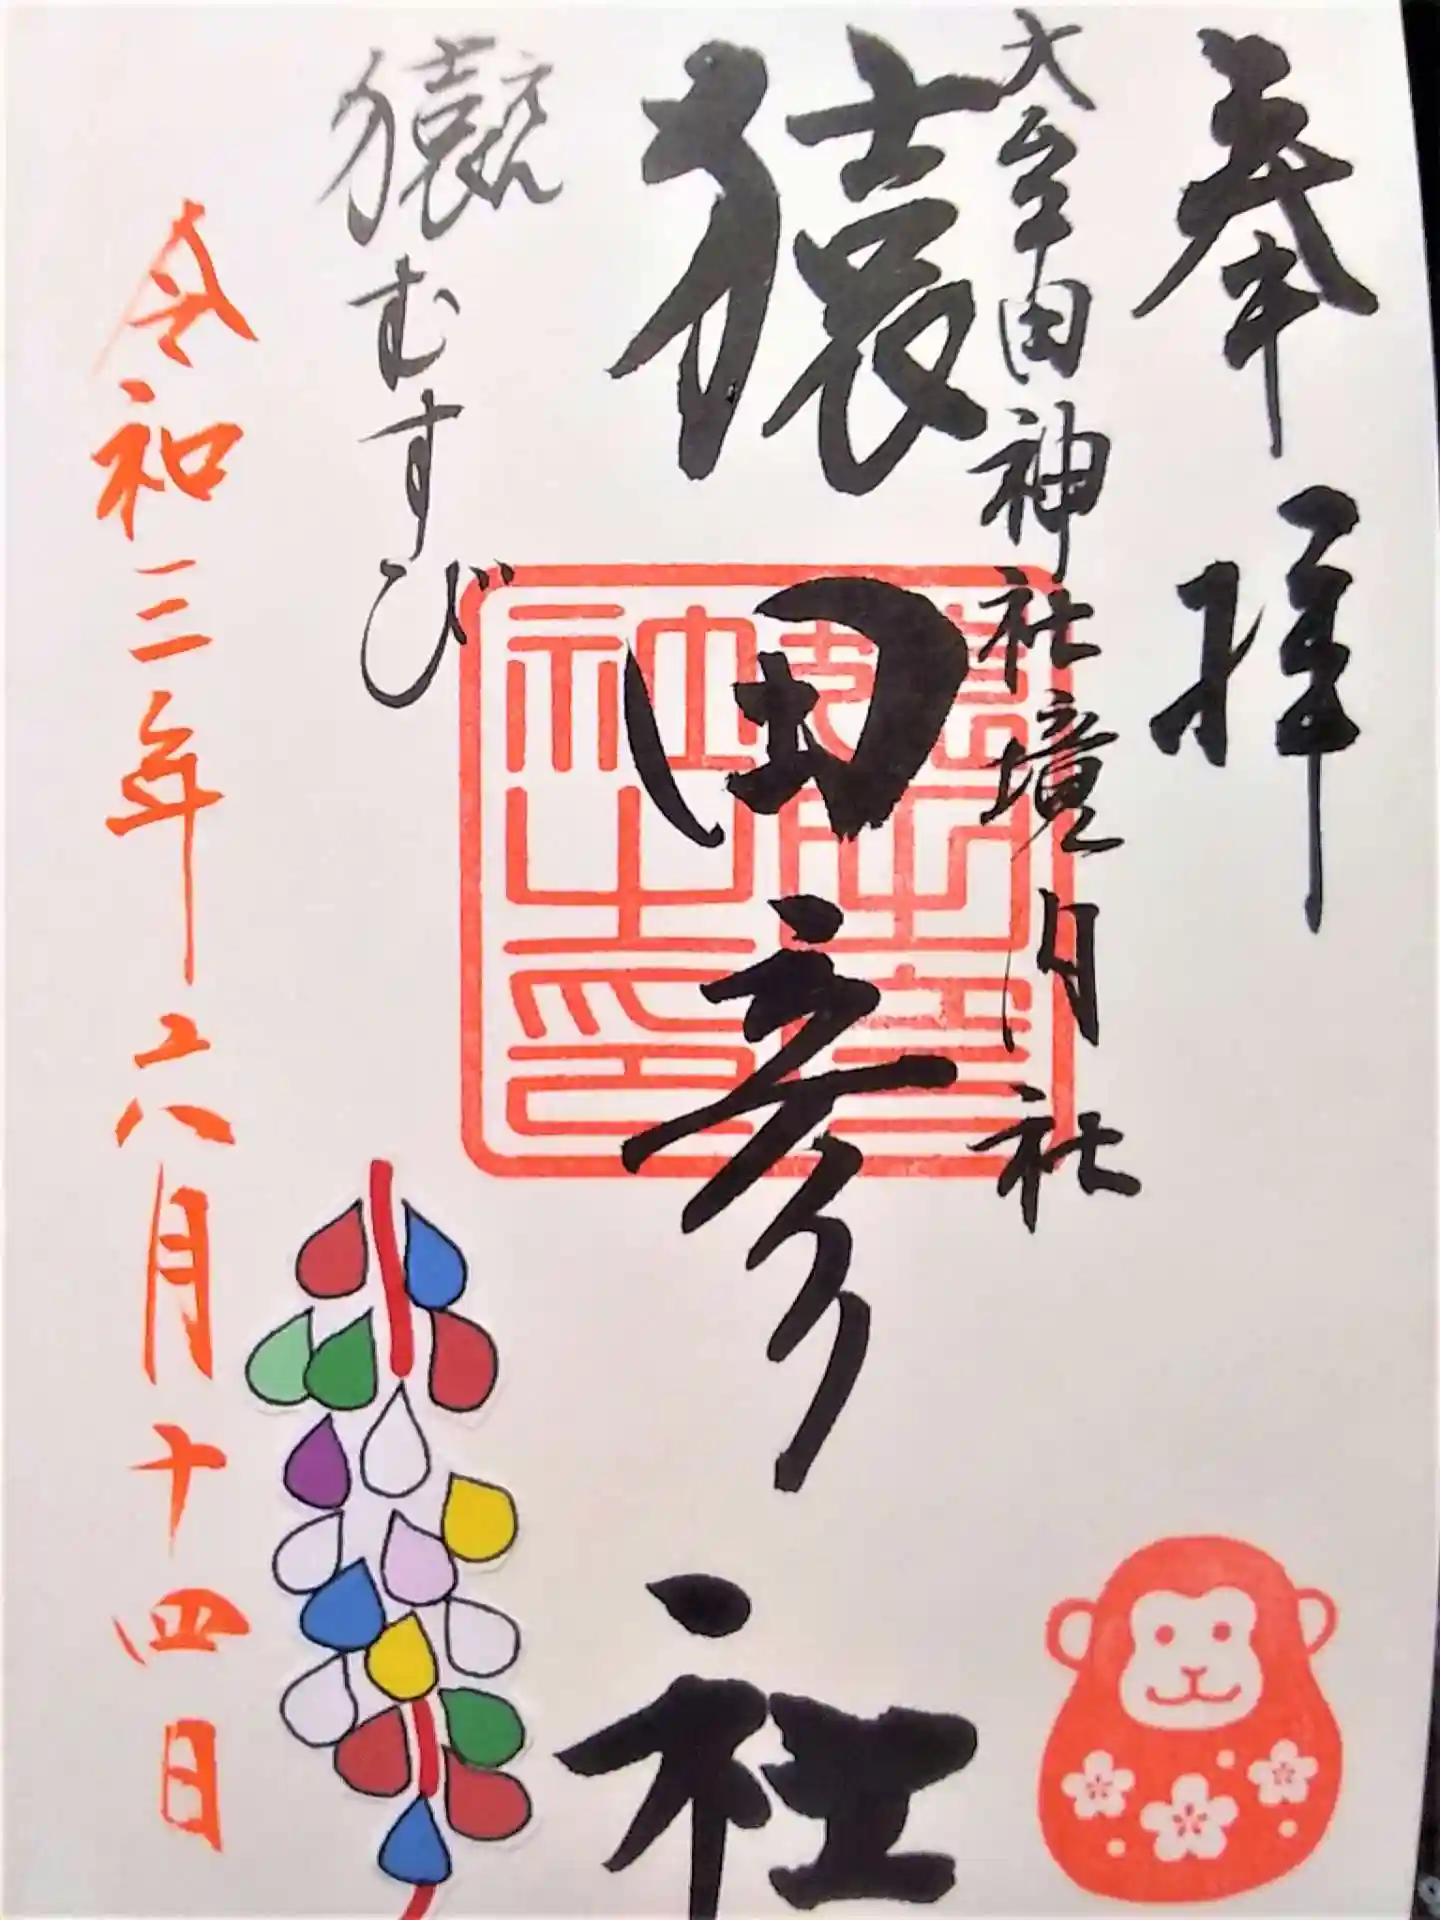 奉拝
大牟田神社境内社
猿田彦社
猿えんむすび
令和三年六月十四日